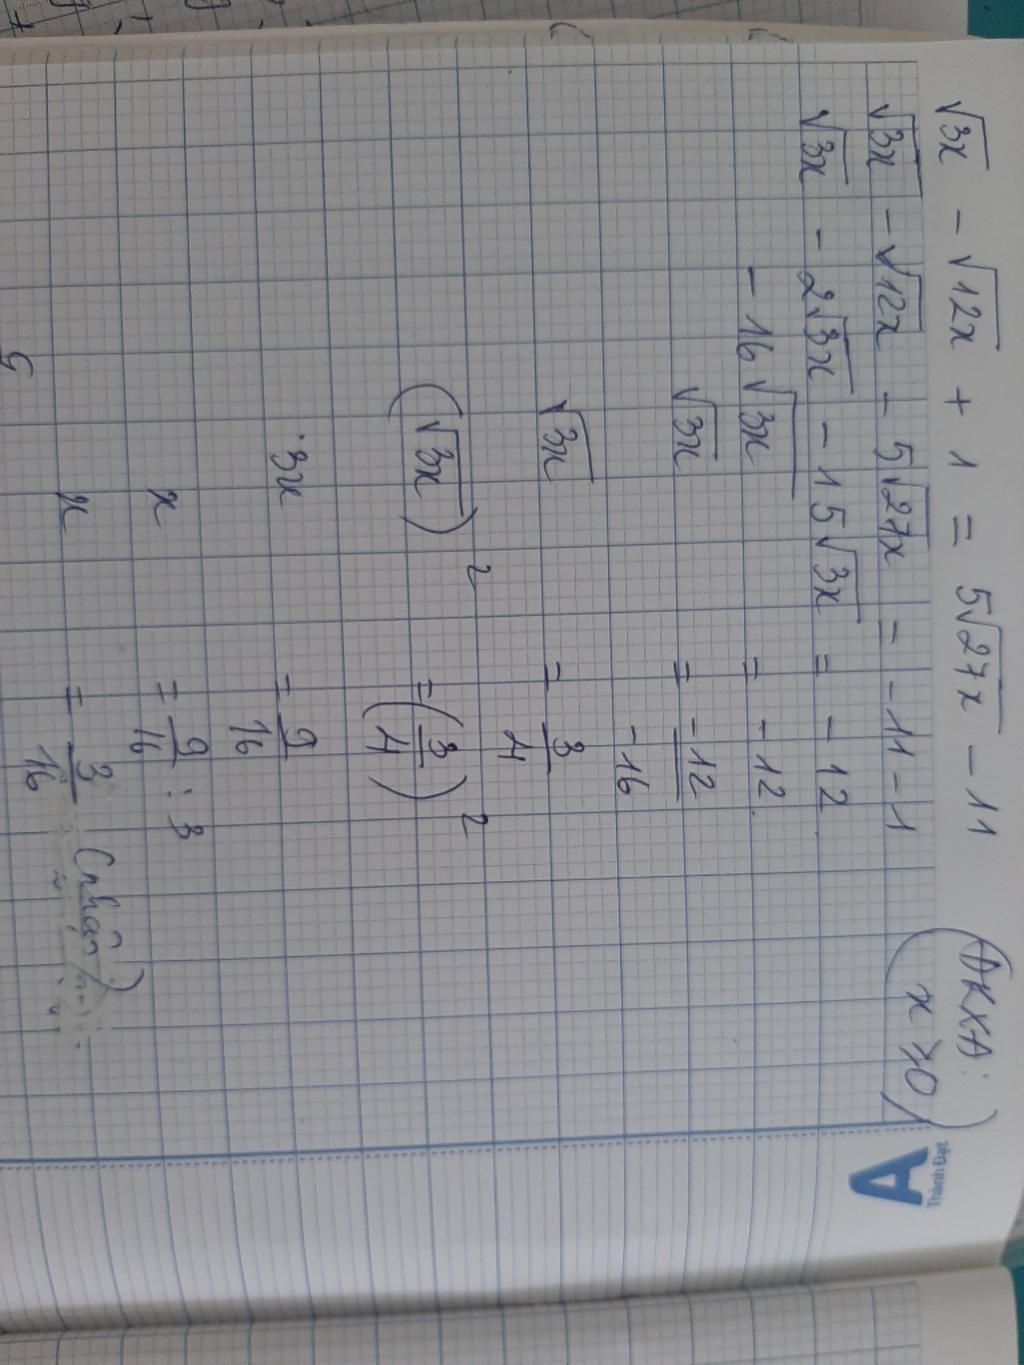 √3x - √12x + 1 = 5√27x - 11 (ĐKXĐ: x ≥ 0)
√3x - √12x - 5√27x = -11 - 1
√3x - 2√3x - 15√3x = -12
-16√3x = -12
√3x = -12/-16
√3x = 3/4
(√3x)² = (3/4)²
3x = 9/16
x = 9/16 : 3
x = 3/16 (nhận)
A
Thành Đạt